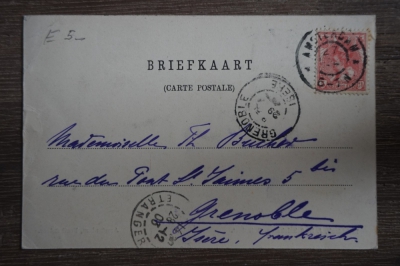 E 5-
BRIEFKAART
(CARTE POSTALE)
AMSTERDAM
GRENOBLE
ISERE
Mademoiselle Th
rue du Pont St Jaimes 5 bis
Grenoble
Isère, Frankreich
ETRANGER